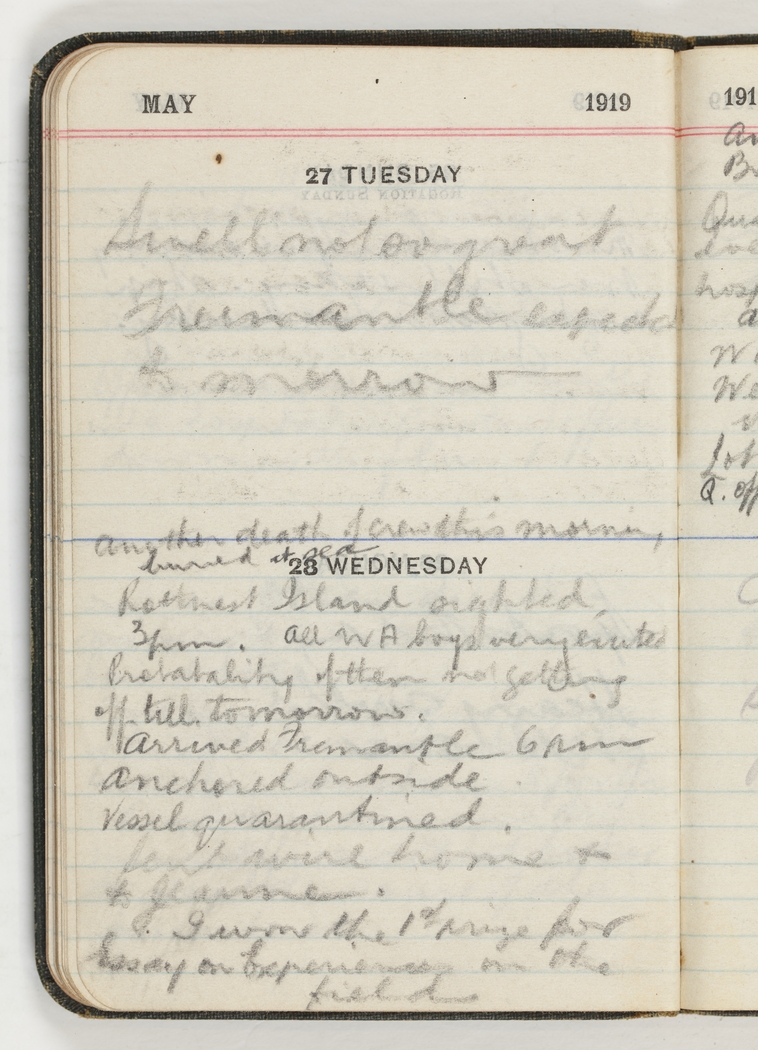 MAY 1919
27 TUESDAY
Swell not so great
Freemantle expected
to morrow
another death of crew this morning
buried at sea
28 WEDNESDAY
Rottnest Island sighted,
3 pm. All WA boys very excited
Probability of them not getting
off till tomorrow.
Arrived Fremantle 6 pm
anchored outside
Vessel quarantined.
Sent wire home &
to Jeanne.
I won the 1st prize for
Essay on Experiences on the
field
191
an
B
Qua
hosp
a
W
We
v
Lot
Q. off